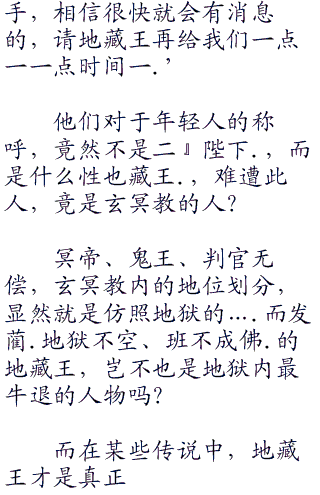 手，相信很快就会有消息
的，请地藏王再给我们一点
一一点时间一.’
他们对于年轻人的称
呼，竟然不是二』陛下.，而
是什么性也藏王.，难遭此
人，竟是玄冥教的人？
冥帝、鬼王、判官无
偿，玄冥教内的地位划分，
显然就是仿照地狱的….而发
蔺.地狱不空、班不成佛.的
地藏王，岂不也是地狱内最
牛退的人物吗？
而在某些传说中，地藏
王才是真正